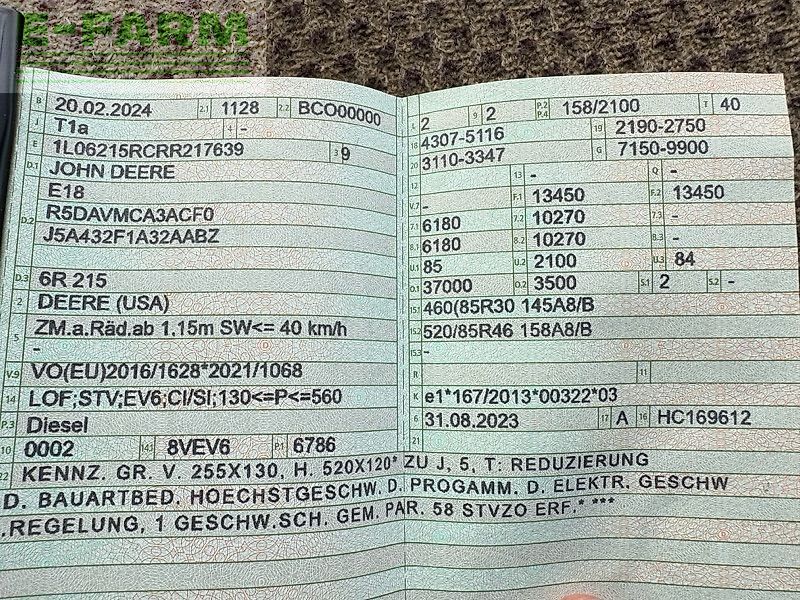 E-FARM
B 20.02.2024 2.1 1128 2.2 BCO00000
J T1a 4 -
E 1L06215RCRR217639 3 9
D.1 JOHN DEERE
E18
D.2 R5DAVMCA3ACF0
J5A432F1A32AABZ
D.3 6R 215
2 DEERE (USA)
5 ZM.a.Räd.ab 1.15m SW<= 40 km/h
-
V.9 VO(EU)2016/1628*2021/1068
14 LOF;STV;EV6;CI/SI;130<=P<=560
P.3 Diesel
10 0002 14.1 8VEV6 P.1 6786
L 2 9 2 P.2 P.4 158/2100 T 40
18 4307-5116 19 2190-2750
20 3110-3347 G 7150-9900
12 13 - Q -
V.7 - F.1 13450 F.2 13450
7.1 6180 7.2 10270 7.3 -
8.1 6180 8.2 10270 8.3 -
U.1 85 U.2 2100 U.3 84
O.1 37000 O.2 3500 S.1 2 S.2 -
15.1 460(85R30 145A8/B
15.2 520/85R46 158A8/B
15.3 -
R 11
K e1*167/2013*00322*03
6 31.08.2023 17 A 16 HC169612
21
22 KENNZ. GR. V. 255X130, H. 520X120* ZU J, 5, T: REDUZIERUNG
D. BAUARTBED. HOECHSTGESCHW. D. PROGAMM. D. ELEKTR. GESCHW
.REGELUNG, 1 GESCHW.SCH. GEM. PAR. 58 STVZO ERF.* ***